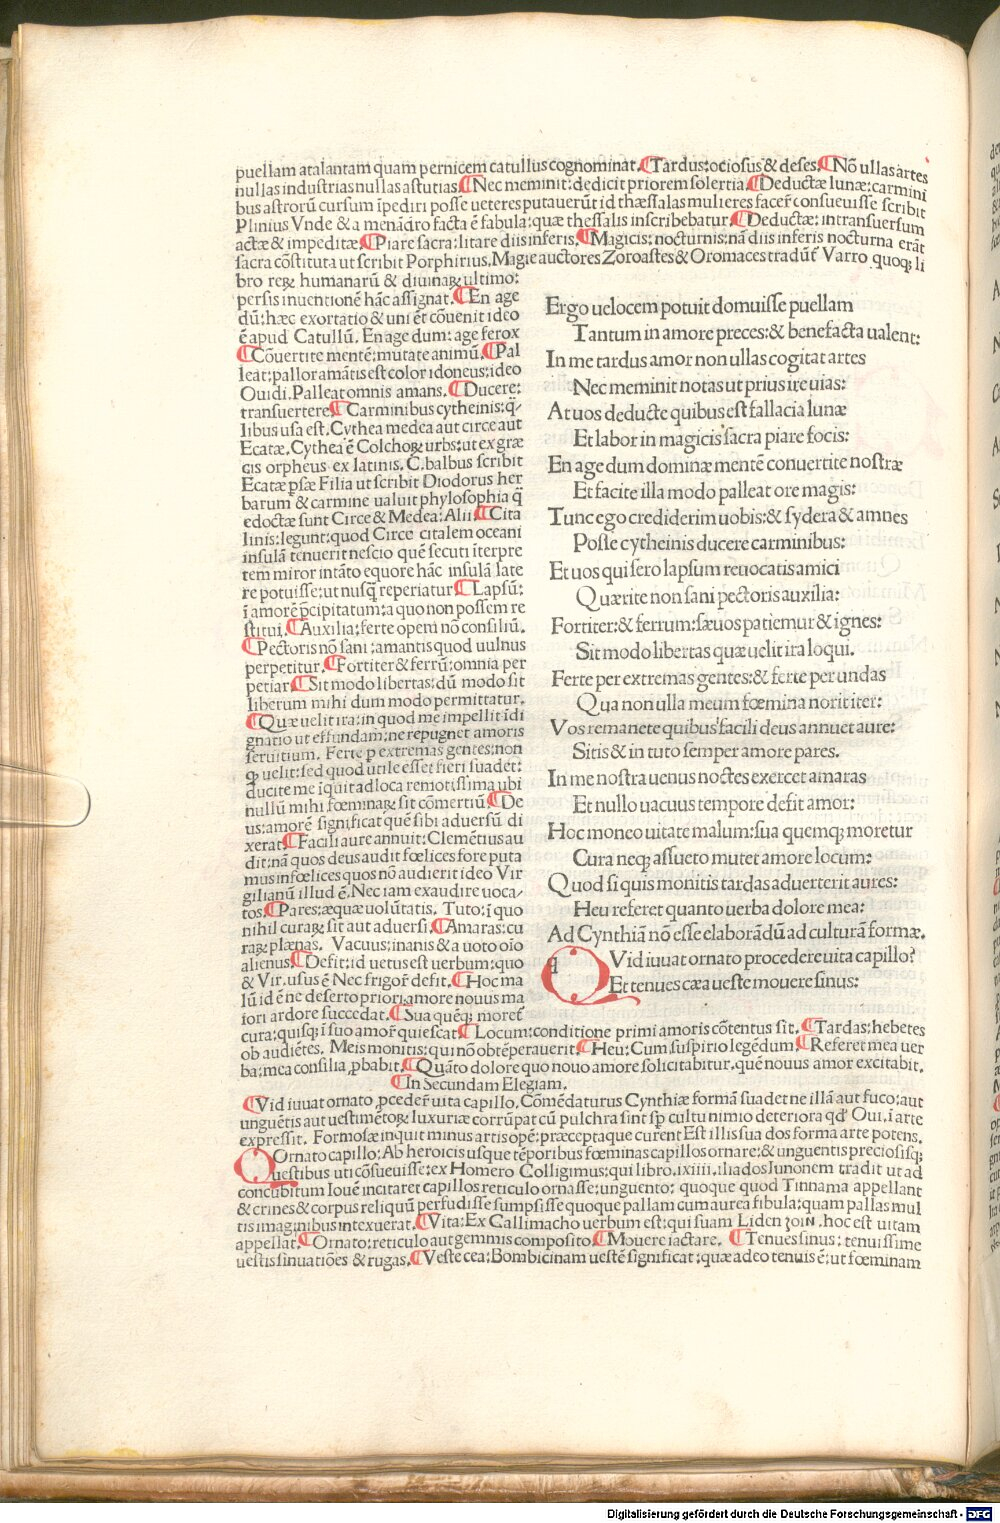 puellam atalantam quam pernicem catullus cognominat. ¶Tardus: ociosus & deses. ¶Nõ ullas artes
nullas industrias nullas astutias. ¶Nec meminit: dedicit priorem solertia. ¶Deductæ lunæ: carmini
bus astrorũ cursum ĩpediri posse ueteres putauerũt id thæssalas mulieres facer̃ consueuisse scribit
Plinius Vnde & a menãdro facta ẽ fabula: quæ thessalis inscribebatur. ¶Deductæ: in transuersum
actæ & impeditæ. ¶Piare sacra: litare diis inferis. ¶Magicis: nocturnis: nã diis inferis nocturna erãt
sacra cõstituta ut scribit Porphirius. Magie auctores Zoroastes & Oromaces tradũt̃ Varro quoq; li
bro reꝝ humanarũ & diuinaꝝ ultimo:
persis inuentionẽ hãc assignat. ¶En age
dũ: hæc exortatio & uni & cõuenit ideo
ẽ apud Catullũ. En age dum: age ferox
¶Cõuertite mentẽ: mutate animũ. ¶Pal
leat: pallor amãtis est color idoneus: ideo
Ouidi. Palleat omnis amans. ¶Ducere:
transuertere. ¶Carminibus cytheinis: q̃-
libus usa est. Cythea medea aut circe aut
Ecatæ. Cythea ẽ Colchoꝝ urbs: ut ex græ
cis orpheus ex latinis. C. balbus scribit
Ecatæ ꝑsæ Filia ut scribit Diodorus her
barum & carmine ualuit phylosophia q̃
edoctæ sunt Circe & Medea: Alii. ¶Cita
linis: legunt: quod Circe citalem oceani
insulã tenuerit nescio quẽ secuti ĩterpre
tem miror intãto equore hãc insulã late
re potuisse: ut nusq̃ reperiatur ¶Lapsũ:
ĩ amorẽ p̃cipitatum: a quo non possem re
stitui. ¶Auxilia: ferte opem nõ consiliũ.
¶Pectoris nõ sani: amantis quod uulnus
perpetitur. ¶Fortiter & ferrũ: omnia per
petiar ¶Sit modo libertas: dũ modo sit
liberum mihi dum modo permittatur.
¶Quæ uelit ira: in quod me impellit ĩdi
gnatio ut effundam: ne repugnet amoris
seruitium. Ferte p extremas gentes: non
ꝙ uelit: sed quod utile esset fieri suadet:
ducite me ĩquit ad loca remotissima ubi
nullũ mihi fœminaꝝ sit cõmertiũ ¶De
us: amorẽ significat quẽ sibi aduersũ di
xerat ¶Facili aure annuit: Clemẽtius au
dit: nã quos deus audit fœlices fore puta
mus infœlices quos nõ audierit ideo Vir
gilianũ illud ẽ. Nec iam exaudire uoca-
tos. ¶Pares: æquæ uolũtatis. Tuto: ĩ quo
nihil curaꝝ sit aut aduersi. ¶Amaras: cu
raꝝ plænas. Vacuus: inanis & a uoto oĩo
alienus. ¶Defit: id uetus est uerbum: quo
& Vir. usus ẽ Nec frigor̃ defit. ¶Hoc ma
lũ id ẽ ne deserto priori amore nouus ma
iori ardore succedat. ¶Sua quẽq; moret̃
Ergo uelocem potuit domuisse puellam
Tantum in amore preces: & benefacta ualent:
In me tardus amor non ullas cogitat artes
Nec meminit notas ut prius ire uias:
At uos deducte quibus est fallacia lunæ
Et labor in magicis sacra piare focis:
En age dum dominæ mentẽ conuertite nostræ
Et facite illa modo palleat ore magis:
Tunc ego crediderim uobis: & sydera & amnes
Posse cytheinis ducere carminibus:
Et uos qui sero lapsum reuocatis amici
Quærite non sani pectoris auxilia:
Fortiter: & ferrum: sæuos patiemur & ignes:
Sit modo libertas quæ uelit ira loqui.
Ferte per extremas gentes: & ferte per undas
Qua non ulla meum fœmina norit iter:
Vos remanete quibus facili deus annuet aure:
Sitis & in tuto semper amore pares.
In me nostra uenus noctes exercet amaras
Et nullo uacuus tempore defit amor:
Hoc moneo uitate malum: sua quemq; moretur
Cura neq; assueto mutet amore locum:
Quod si quis monitis tardas aduerterit aures:
Heu referet quanto uerba dolore mea:
Ad Cynthiã nõ esse elaborãdũ ad culturã formæ.
Quid iuuat ornato procedere uita capillo?
Et tenues cæa ueste mouere sinus:
cura: quisq; ĩ suo amor̃ quiescat ¶Locum: conditione primi amoris cõtentus sit. ¶Tardas: hebetes
ob audiẽtes. Meis monitis: qui nõ obtẽperauerit. ¶Heu: Cum suspirio legẽdum. ¶Referet mea uer
ba: mea consilia ꝓbabit. ¶Quãto dolore quo nouo amore solicitabitur. quẽ nouus amor excitabit.
¶In Secundam Elegiam.
¶Vid iuuat ornato ꝓceder̃ uita capillo. Cõmẽdaturus Cynthiæ formã suadet ne illã aut fuco: aut
unguẽtis aut uestimẽtoꝝ luxuriæ corrũpat cũ pulchra sint sp̃ cultu nimio deteriora qđ Oui. ĩ arte
expressit. Formosæ inquit minus artis opẽ: præceptaque curent Est illis sua dos forma arte potens.
QOrnato capillo: Ab heroicis usque tẽporibus fœminas capillos ornare: & unguentis preciosisq;
uestibus uti cõsueuisse: ex Homero Colligimus: qui libro. ixiiii. iliados Iunonem tradit ut ad
concubitum Iouẽ incitaret capillos reticulo ornasse: unguento: quoque quod Tinnama appellant
& crines & corpus reliquũ perfudisse sumpsisse quoque pallam cum aurea fibula: quam pallas mul
tis imaginibus intexuerat. ¶Vita: Ex Callimacho uerbum est: qui suam Liden ʒoιν. hoc est uitam
appellat. ¶Ornato: reticulo aut gemmis composito. ¶Mouere iactare. ¶Tenues sinus: tenuissime
uestis sinuatiões & rugas. ¶Veste cea: Bombicinam uestẽ significat: quæ adeo tenuis ẽ: ut fœminam
Digitalisierung gefördert durch die Deutsche Forschungsgemeinschaft - DFG